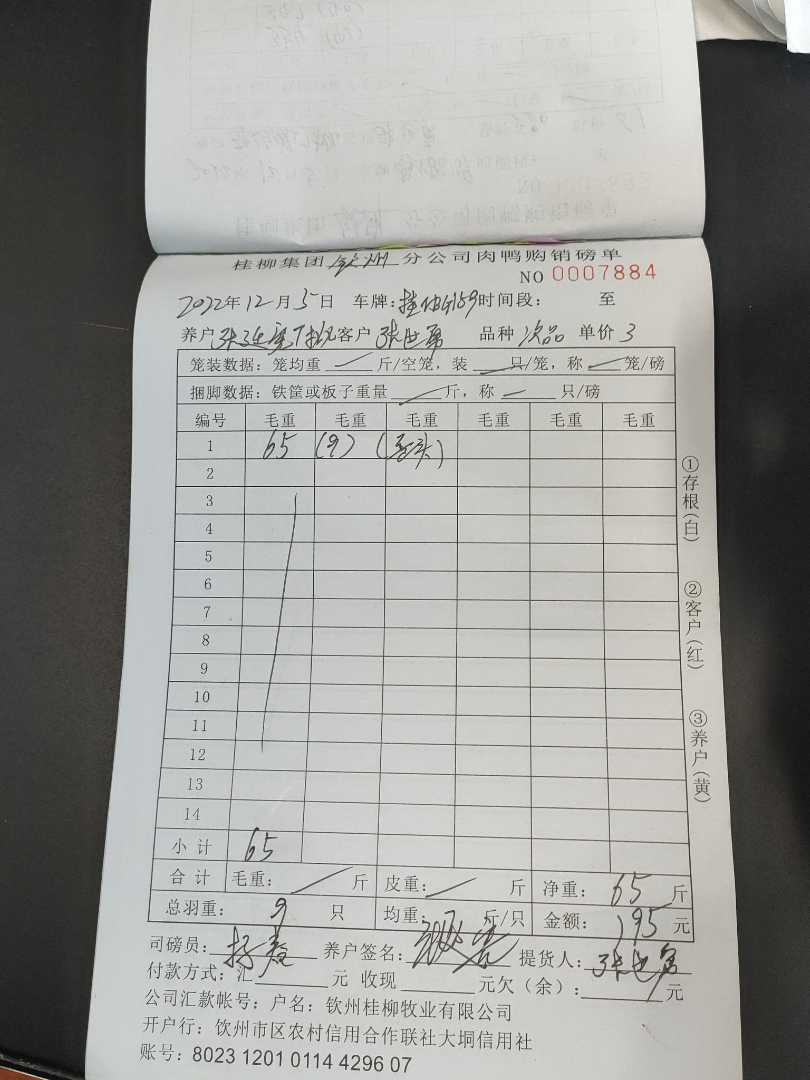 桂柳集团 钦州 分公司肉鸭购销磅单
NO 0007884
2022年12月5日 车牌: 时间段: 至
养户 客户 张世勇 品种 次品 单价 3
笼装数据：笼均重 斤/空笼，装 只/笼，称 笼/磅
捆脚数据：铁筐或板子重量 斤，称 只/磅
编号 毛重 毛重 毛重 毛重 毛重 毛重
1 65 (9)
2
3
4
5
6
7
8
9
10
11
12
13
14
小计 65
合计 毛重: 斤 皮重: 斤 净重: 65 斤
总羽重: 9 只 均重: 斤/只 金额: 195 元
司磅员: 养户签名: 提货人: 张世勇
付款方式:汇 元 收现 元欠（余）: 元
公司汇款帐号: 户名: 钦州桂柳牧业有限公司
开户行: 钦州市区农村信用合作联社大垌信用社
账号: 8023 1201 0114 4296 07
①存根(白)
②客户(红)
③养户(黄)